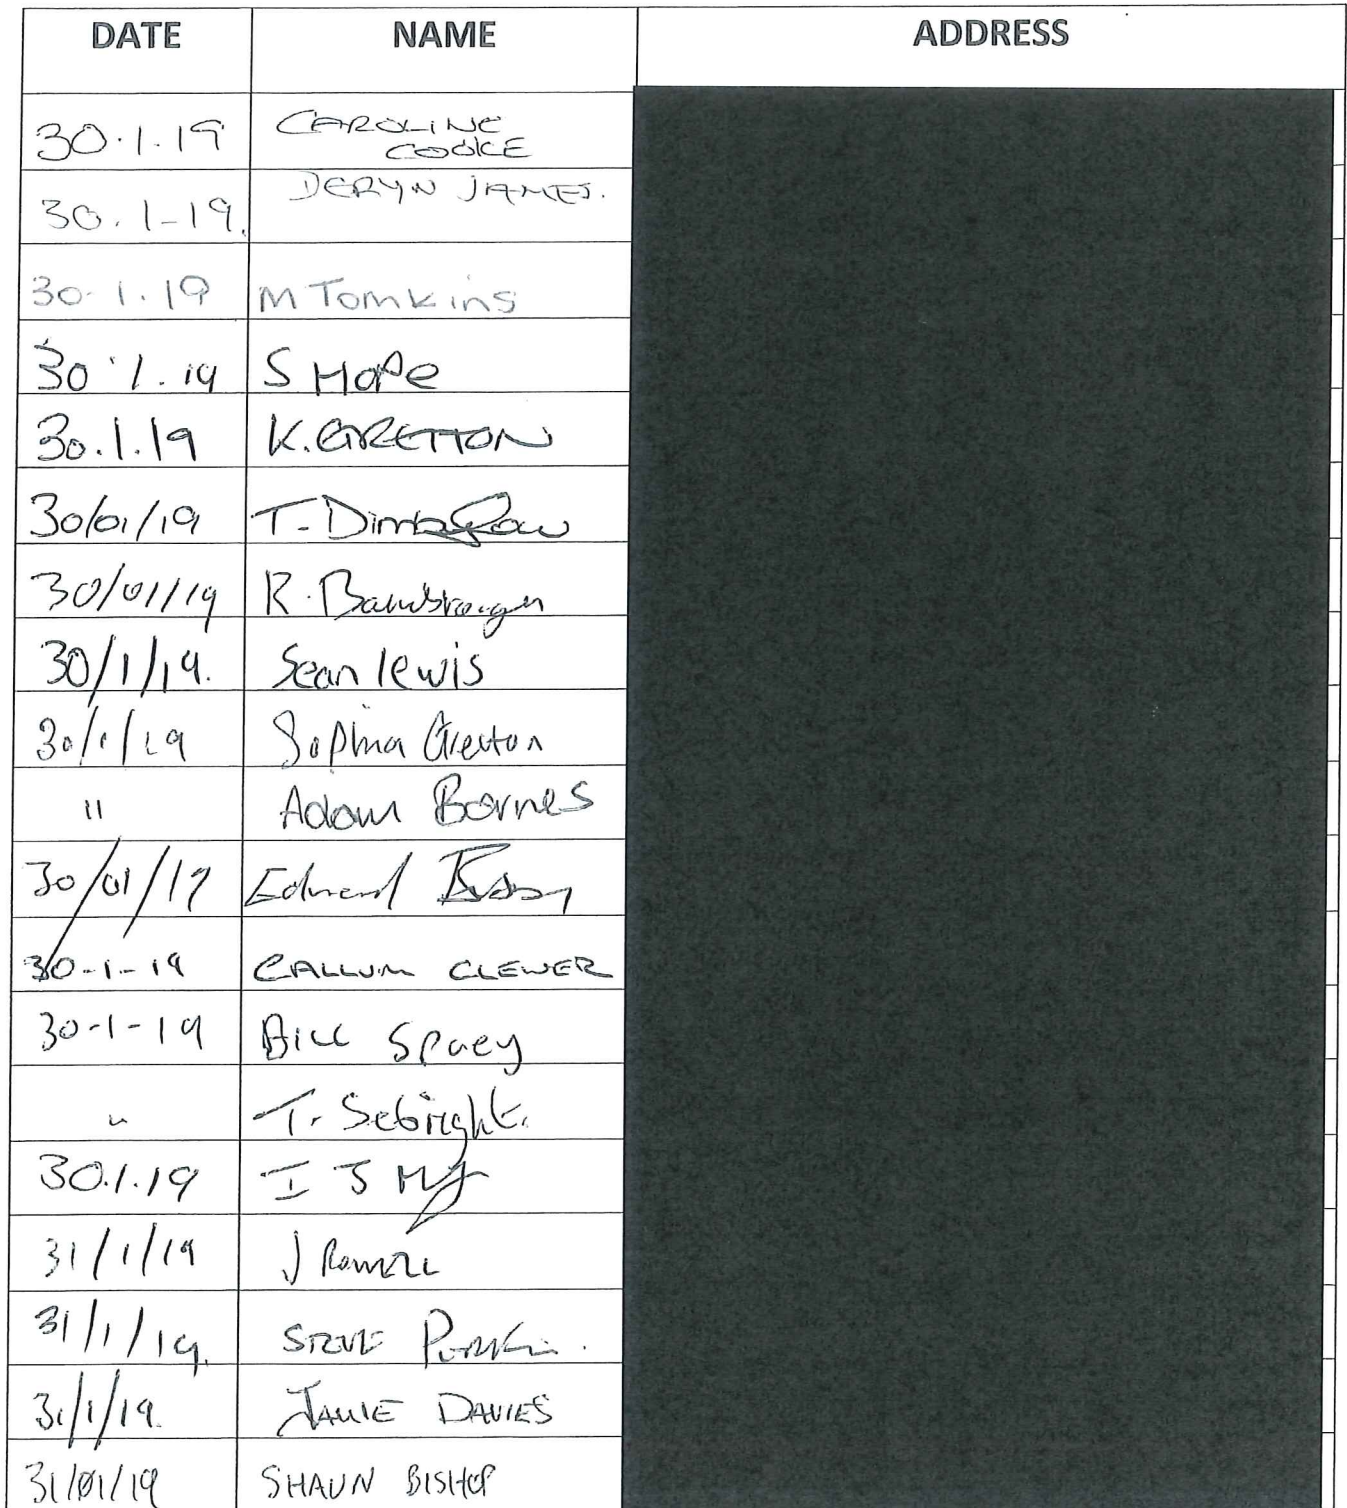 DATE NAME ADDRESS
30.1.19 CAROLINE
COOKE
30.1-19. DERYN JAMES.
30.1.19 M Tomkins
30.1.19 S HOPE
30.1.19 K. GRETTON
30/01/19 T.
30/01/19 R.
30/1/19. Sean lewis
30/1/19 Sophia Gretton
" Adam Barnes
30/01/19 Edward
30-1-19 CALLUM CLEWER
30-1-19 Bill Spuey
" T. Sebright.
30.1.19 I J
31/1/19 J
31/1/19. STEVE
31/1/19. JAMIE DAVIES
31/01/19 SHAUN BISHOP